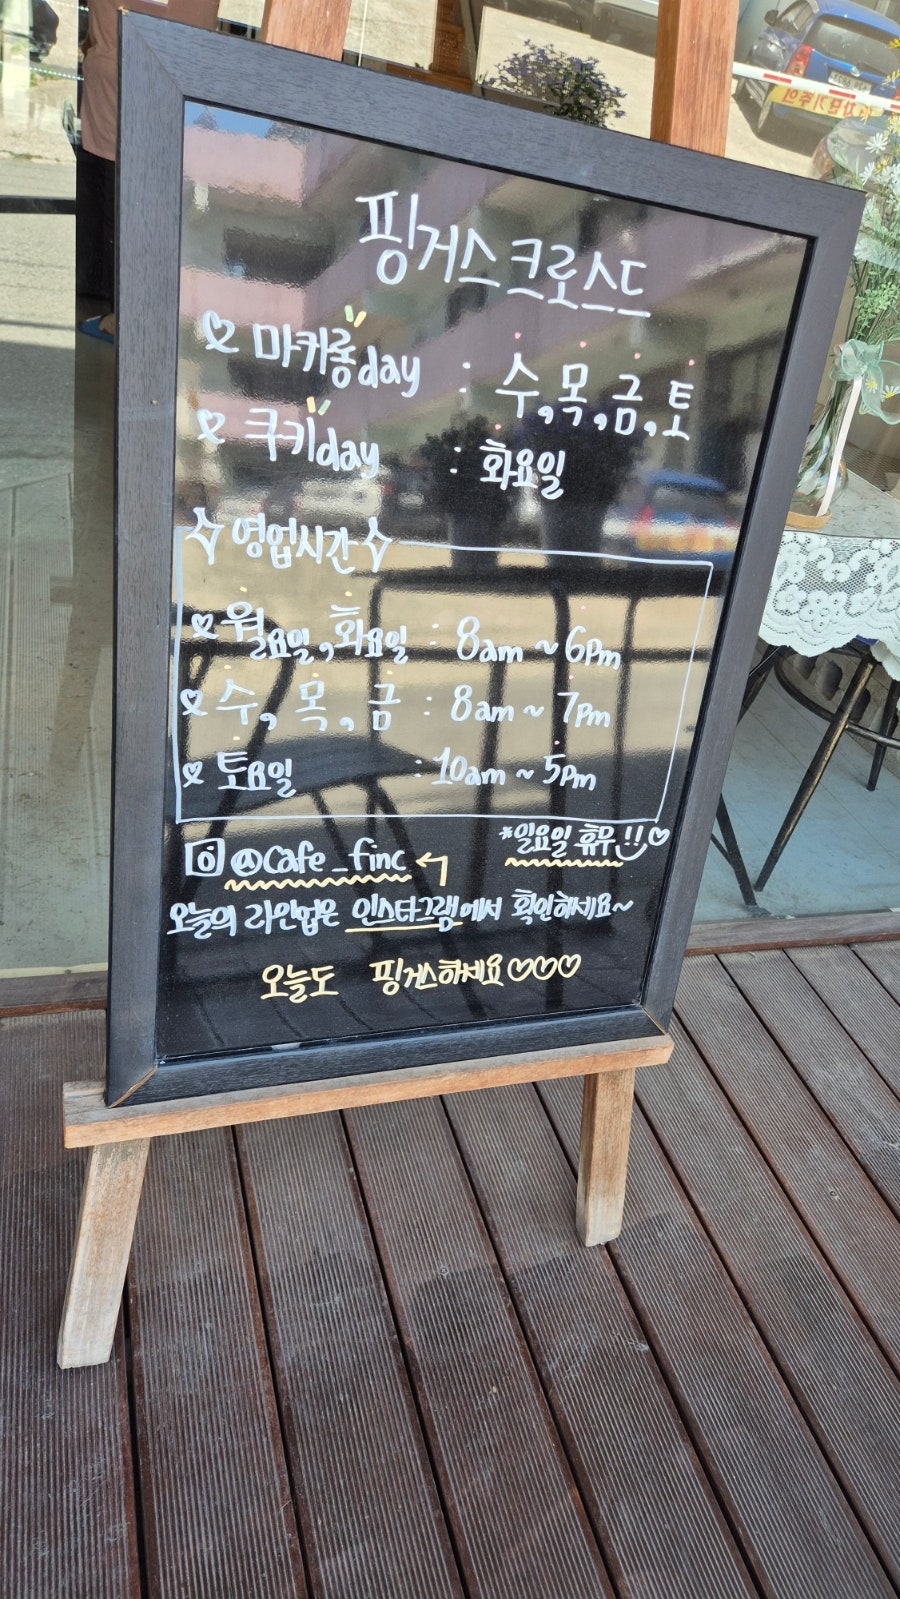 핑거스크로스드
♡ 마카롱day : 수,목,금,토
♡ 쿠키day : 화요일
영업시간
♡ 월요일,화요일 : 8am ~ 6pm
♡ 수, 목, 금 : 8am ~ 7pm
♡ 토요일 : 10am ~ 5pm
*일요일 휴무!!♡
@cafe_finc
오늘의 라인업은 인스타그램에서 확인하세요~
오늘도 핑거스하세요♡♡♡